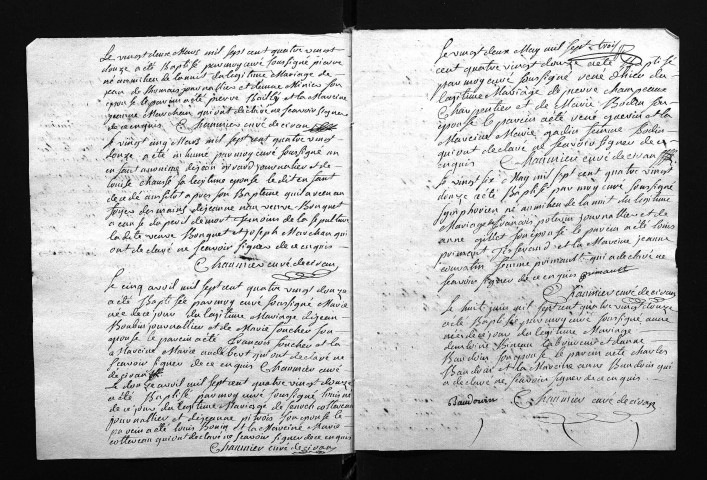 Le vingt deux Mars mil sept cent quatre vingt
douze a été Baptisé par moy curé soussigné pierre
né au milieu de la nuit du legitime Mariage de
jean de thomais journallier et de anne Miniers son
epouse le parein a été pierre Bailly et la Mareine
jeanne Marchan qui ont declaré ne scavoir signer
de ce enquis Chaumier curé de civan
Le vingt cinq Mars mil sept cent quatre vingt
douze a été inhumé par moy curé soussigné un
enfant anonime de jean girard journallier et de
louise chausse sa legitime epouse le dit enfant
decedé aussitot apres son Baptême qu'il a receu au
foyer des mains de jeanne veuve Bouquet
a cause du peril de mort temoins de la sepulture
la dite veuve Bouquet et joseph Marchan qui
ont declaré ne scavoir signer de ce enquis
Chaumier curé de civan
Le cinq avril mil sept cent quatre vingt douze
a été Baptisée par moy curé soussigné Marie
née de ce jour du legitime Mariage de jean
Boubin journallier et de Marie fouchés son
epouse le parein a été francois fouches et la
Mareine Marie audebert qui ont declaré ne
scavoir signer de ce enquis Chaumier curé
de civan
Le douze avril mil sept cent quatre vingt douze
a été Baptisé par moy curé soussigné louis né
de ce jour du legitime Mariage de cottereau
journallier et de jeanne son epouse le
parein a été louis Bonin et la Mareine Marie
cottereau qui ont declaré ne scavoir signer de ce enquis
Chaumier curé de civan
Le vingt deux May mil sept
cent quatre vingt douze a été Baptisé
par moy curé soussigné rené du
legitime Mariage de pierre champeaux
charpentier et de Marie Bodin son
epouse le parein a été rené guerin et la
Mareine Marie gadin femme Bodin
qui ont declaré ne scavoir signer de ce
enquis Chaumier curé de civan
Le vingt six May mil sept cent quatre vingt
douze a été Baptisé par moy curé soussigné
symphorien né au milieu de la nuit du legitime
Mariage de francois potevin journallier et de
anne gillet son epouse le parein a été louis
primault et la Mareine jeanne
femme primault qui a declaré ne
scavoir signer de ce enquis primault
Chaumier curé de civan
Le huit juin mil sept cent quatre vingt douze
a été Baptisée par moy curé soussigné anne
née de ce jour du legitime Mariage
de et danne
Baudoin son epouse le parein a été charles
Baudoin et la Mareine anne Baudoin qui
a declaré ne scavoir signer de ce enquis
Baudouin Chaumier curé de civan